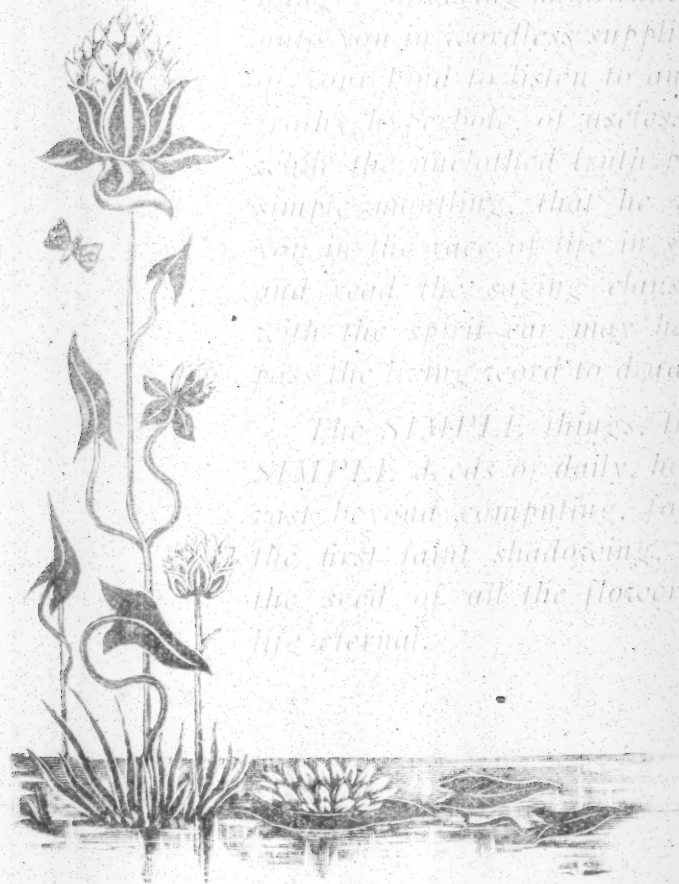 unto you in wordless suppli
of your kind to listen to an
frothy hyperbole, of useless
while the unclothed truth
simple mantling, that he
you in the race of life in
and read the saving claus
with the spirit ear may he
pass the living word to
The SIMPLE things, th
SIMPLE deeds of daily
vast beyond computing, for
the first faint shadowing,
the seed of all the flower
life eternal.